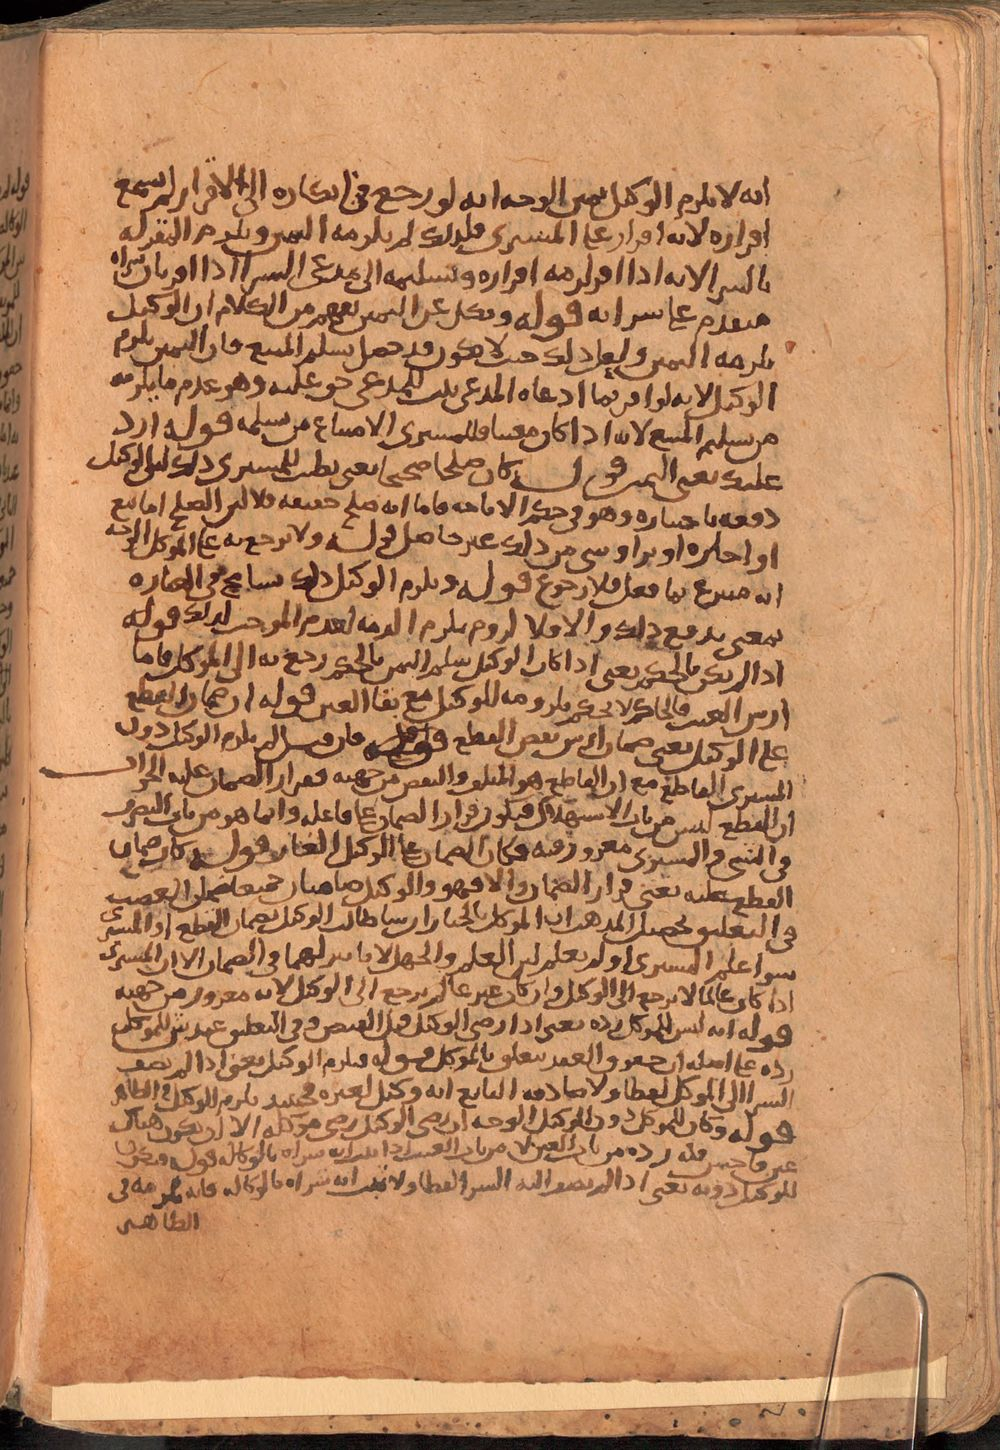 انه لا يلزم الوكيل يمين الوجه انه لو رجع في انكاره الى الاقرار لم يسمع
اقراره لانه اقرار على المشتري فلذلك لم يلزمه اليمين ويلزم المقر له
بالشرا لانه اذا اقر لزمه اقراره وتسليمه الى مدعي الشرا اذا اقر بان شراه
متقدم على شرايه قوله ونكل عن اليمين يفهم من الكلام ان الوكيل
يلزمه اليمين ولعل ذلك حيث لا يكون قد حصل تسليم المبيع فان اليمين يلزم
الوكيل لانه لو اقر بما ادعاه المدعي يثبت للمدعي حق عليه وهو عدم ما يلزمه
من تسليم المبيع لانه اذا كان معيبا فللمشتري الامتناع من تسلمه قوله ارد
عليك يعني اليمين قوله كان صلحا صحيحا يعني يطيب للمشتري ذلك لان الوكيل
دفعه باختياره وهو في حكم الاباحه فاما انه صلح حقيقه فلا لان الصلح اما بيع
او اجاره او ابرا وشي من ذلك غير حاصل قوله ولا يرجع به على الموكل الوجه
انه متبرع بما فعل فلا رجوع قوله ويلزم الوكيل ذلك تسامح في العباره
بمعنى يدفع ذلك والا فلا لزوم يلزم الذمه لعدم الموجب لذلك قوله
اذا لم يكن بالحكم يعني اذا كان الوكيل سلم الثمن بالحكم رجع به الى الموكل فاما
ارش العيب فالحاكم لا يحكم بلزومه للوكيل مع بقا العين قوله ان ضمان القطع
على الوكيل يعني ضمان ارش نقص القطع فان قيل لم يلزم الوكيل دون
المشتري القاطع مع ان القاطع هو المتلف والنقص من جهته فقرار الضمان عليه الجواب
ان القطع ليس من باب الاستهلاك فيكون قرار الضمان على فاعله وانما هو من باب التصرف
في الشي والمشتري مغرور فيه فكان الضمان على الوكيل الغار قوله كان ضمان
القطع عليه يعني قرار الضمان والا فهو والوكيل ضامنان جميعا
في التعليق تحصيل المذهب ان الموكل بالخيار ان شا طالب الوكيل بضمان القطع او المشتري
سوا علم المشتري او لم يعلم لان العلم والجهل لا تاثير لهما في الضمان الا ان المشتري
اذا كان عالما لا يرجع الى الوكيل وان كان غير عالم يرجع الى الوكيل لانه مغرور من جهته
قوله انه ليس للموكل رده يعني اذا رضي الوكيل قبل القبض وفي التعليق
رده على اصله ان حقوق العقد تتعلق بالموكل قوله فيلزم الوكيل يعني اذا لم يضف
الشرا الى الموكل لفظا ولا صادقه البايع انه وكيل لغيره فحينئذ يلزم الوكيل في الظاهر
قوله وكان للموكل دون الوكيل الوجه ان رضى الوكيل رضى موكله الا ان يكون هناك
غبن فاحش فله رده من باب الغبن لا من باب العيب اذا ثبت انه شراه بالوكاله قوله ويكون
للوكيل دونه يعني اذا لم يضف اليه الشرا لفظا ولا ثبت انه شراه بالوكاله فانه يلزمه في
الظاهر